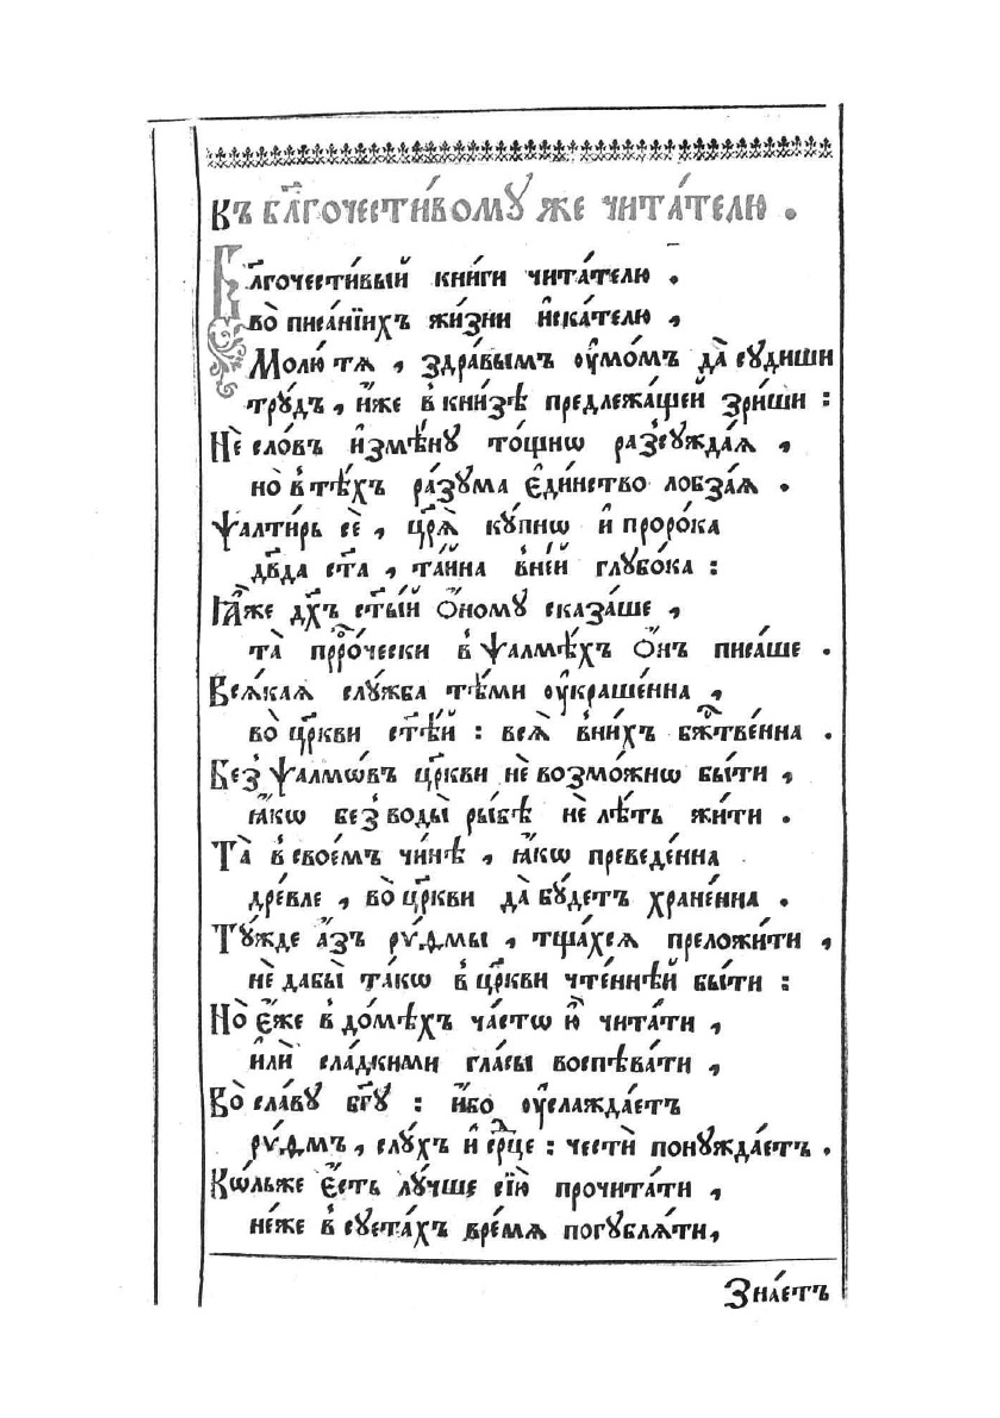 Къ бл҃гочести́вомꙋ же чита́телю .
Бл҃гочести́вый кни́ги чита́телю .
во̀ писа́нїихъ жи́зни и҆ска́телю ,
Молю́ тѧ , здра́вымъ ᲂу҆мо́мъ да̀ сꙋдиши
трꙋ́дъ , и҆́же в̾ кни́зѣ предлежа́щей зри́ши :
Нѐ сло́въ и҆змѣ́нꙋ то́щнѡ раз̾сꙋжда́ѧ ,
но в̾ тѣ́хъ ра́зꙋма є҆ди́нство лобза́ѧ .
Ѱалти́рь сѐ , цр҃ѧ̀ кꙋ́пнѡ и҆ проро́ка
дв҃да ст҃а , та́йна в̾ не́й глꙋбо́ка :
Ꙗ҆̀же дх҃ъ ст҃ы́й ѻ҆́номꙋ сказа́ше ,
та̀ прⷪ҇ро́чески в̾ ѱалмѣ́хъ ѻ҆́нъ писа́ше .
Всѧ́каѧ слꙋ́жба тѣ́ми ᲂу҆краше́нна ,
во̀ цр҃кви ст҃ѣ́й : всѧ̀ в̾ ни́хъ бжⷭ҇тве́нна .
Без̾ ѱалмѡ́въ цр҃кви нѐ возмо́жнѡ бы́ти ,
ꙗ҆́кѡ без̾ воды̀ ры́бѣ нѐ лѣ́ть жи́ти .
Та̀ в̾ свое́мъ чи́нѣ , ꙗ҆́кѡ преведе́нна
дре́вле , во̀ цр҃кви да̀ бꙋ́детъ хране́нна .
Тꙋ́жде а҆́зъ рѵ́ѳмы , тща́хсѧ преложи́ти ,
нѐ дабы̀ та́кѡ в̾ цр҃кви чте́ннѣй бы́ти :
Но̀ є҆́же в̾ до́мѣхъ ча́стѡ ю҆̀ чита́ти ,
и҆лѝ сла́дкими гла́сы воспѣва́ти ,
Во̀ сла́вꙋ бг҃ꙋ : и҆́бо ᲂу҆слажда́етъ
рѵ́ѳмъ , слꙋ́хъ и҆ срⷣце : честѝ понꙋжда́етъ .
Кѡ́льже є҆́сть лꙋ́чше сїю̀ прочита́ти ,
не́же в̾ сꙋета́хъ вре́мѧ погꙋблѧ́ти ,
Зна́етъ